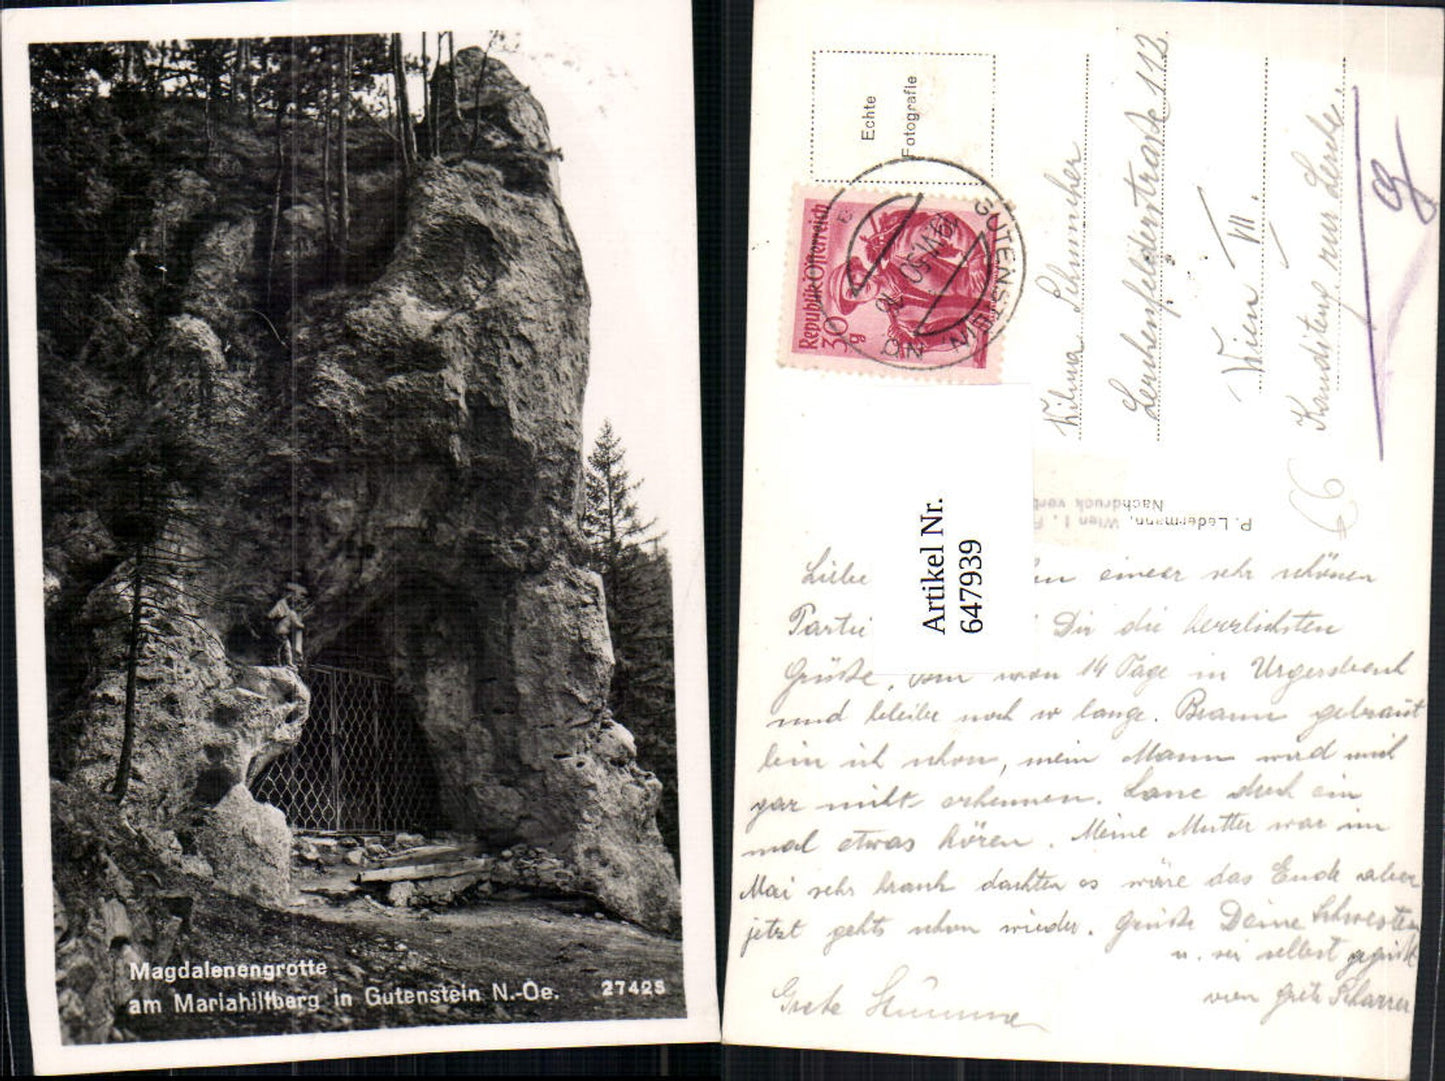 Magdalenengrotte
am Mariahilfberg in Gutenstein N.-Oe. 27425
Echte
Fotografie
Republik Österreich
30 g
GUTENSTEIN
N.Ö.
Wilma
Lerchenfelderstraße 112.
Wien VII.
66
P. Ledermann, Wien I
Nachdruck verb
Artikel Nr.
647939
Liebe einer sehr schönen
Partie Dir die herzlichsten
Grüße, schon 14 Tage in
und bleibe noch so lange. Braun gebrannt
bin ich schon, mein Mann wird mich
gar nicht erkennen. Lasse doch ein
mal etwas hören. Meine Mutter war im
Mai sehr krank dachten es wäre das Ende aber
jetzt gehts schon wieder. Grüße Deine Schwester
u. sei selbst gegrüßt
von Grete
Grete